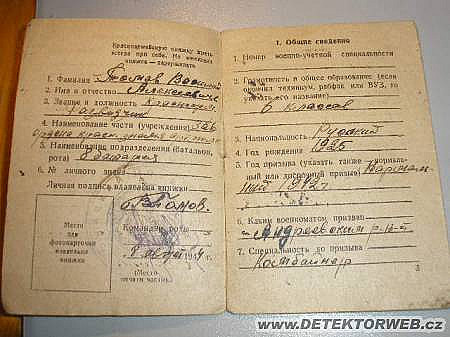 Красноармейскую книжку иметь
всегда при себе. Не имеющих
книжек — задерживать
1. Фамилия Томов Василий
2. Имя и отчество Алексеевич
3. Звание и должность
4. Наименование части (учреждения)
5. Наименование подразделения (батальон,
рота)
6. № личного знака
Личная подпись владельца книжки
Томов.
Место
для
фотокарточки
владельца
книжки
Командир роты
8 1944 г.
(Место
печати части)
1. Общие сведения
1. Номер военно-учетной специальности
2. Грамотность и общее образование (если
окончил техникум, рабфак или ВУЗ, то
указать его название)
6 классов
3. Национальность Русский
4. Год рождения 1925
5. Год призыва (указать также нормаль-
ный или досрочный призыв) Нормаль-
ный 1942 г.
6. Каким военкоматом призван
Андреевским
7. Специальность до призыва
Комбайнер
3
© WWW.DETEKTORWEB.cz